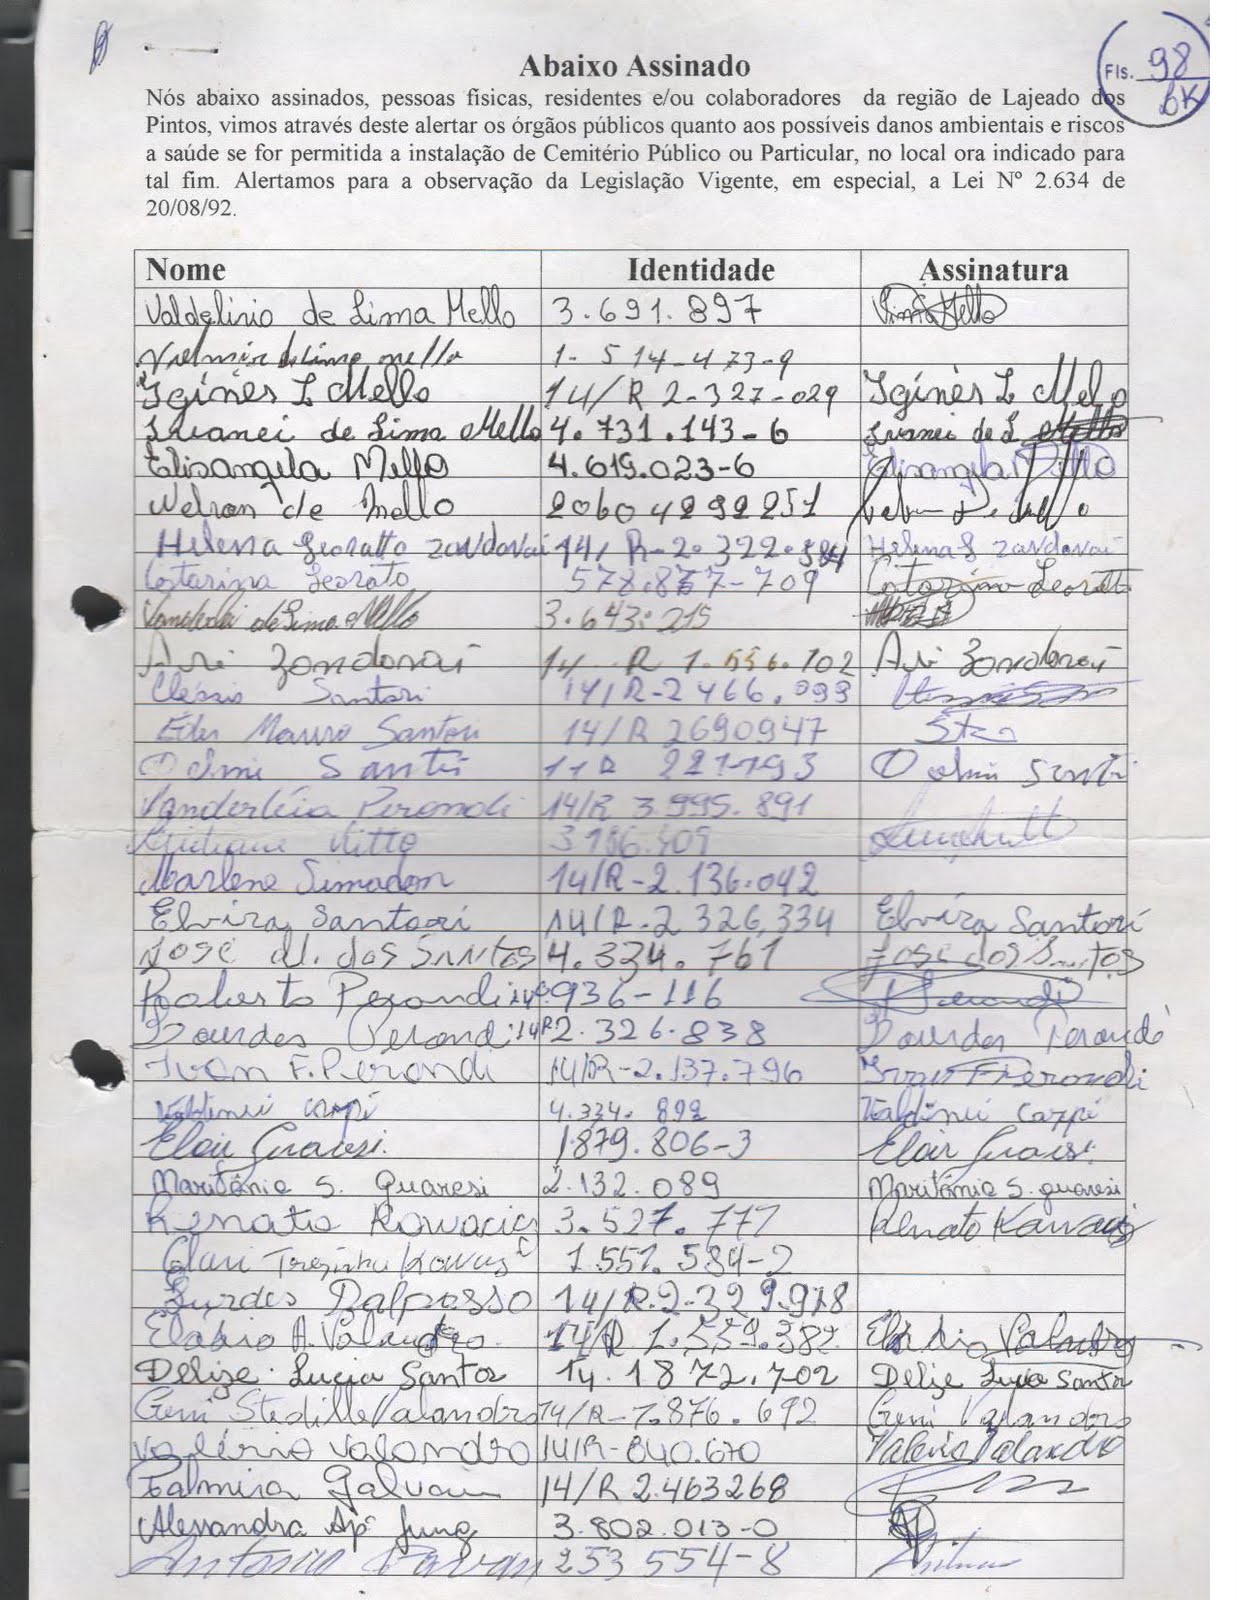 Abaixo Assinado
Fls. 98
Nós abaixo assinados, pessoas físicas, residentes e/ou colaboradores da região de Lajeado dos
Pintos, vimos através deste alertar os órgãos públicos quanto aos possíveis danos ambientais e riscos
a saúde se for permitida a instalação de Cemitério Público ou Particular, no local ora indicado para
tal fim. Alertamos para a observação da Legislação Vigente, em especial, a Lei Nº 2.634 de
20/08/92.
Nome Identidade Assinatura
Valdelirio de Lima Mello 3.691.897 Mello
de Lima mello 1-514-473-9
Iginês L Mello 14/R 2-327-029 Iginês L Melo
Ivanei de Lima Mello 4.731.143-6 Ivanei de L Mello
Elisangela Mello 4.619.023-6 Elisangela Mello
Nelson de Mello 20604292251
Helena Leoratto Zandonai 14/R-2.322.584 Helena L Zandonai
Catarina Leorato 578.867-709 Catarina Leoratt
Vanderlei de Lima Mello 3.643.215
Ari Zondonai 14 R 1.556.102 Ari Zondonai
Santori 14/R-2466.093
Eder Mauro Santori 14/R 2690947
Odmi Santi 11R 221793
Vanderléia Perondi 14/R 3.995.891
Vitto 3196.409
Marlene Simadon 14/R-2.136.042
Elvira Santori 14/R-2 326,334 Elvira Santori
José dos Santos 4.334.761 José dos Santos
Roberto Perondi 14R 936-116 Perondi
Lourdes Perondi 14R 2.326.838 Lourdes Perondi
Ivan F. Perondi 14/R-2.137.796 Ivan F Perondi
Valdinei Carpi 4.334.892 Valdinei Carpi
Eloir Guaresi. 1879.806-3 Eloir Guaresi
Maritânia S. Guaresi 2.132.089 Maritânia S. guaresi
Renato Kowacic 3.527.777 Renato
Clari Terezinha 1.551.584-2
Lurdes Dalposso 14/R.2-329.978
Eladio A. Valandro. 14/R 1.559.387 Eladio Valandro
Delize Lucia Santor 14.1872.702 Delize Lucia Santor
Geni Stedille Valandro 14/R-1.876.692 Geni Valandro
Valério Valandro 14/R-840.670 Valério Valandro
Talmira Galvan 14/R 2.463268
Alessandra Ap. Jung 3.802.013-0
Antonio Pavan 253 554-8 Antonio